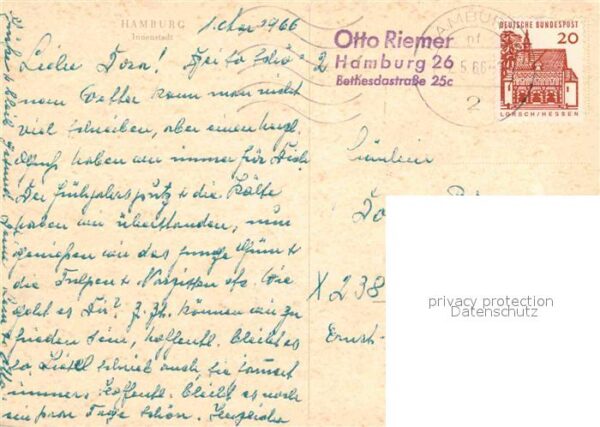 HAMBURG
Innenstadt
1. Mai 1966
Liebe Dora! Bei so schö-
nem Wetter kann man nicht
viel schreiben, aber einen herzl.
Gruß haben wir immer für Dich
Der Frühjahrsputz & die Kälte
haben wir überstanden, nun
genießen wir das junge Grün &
die Tulpen & Narzissen etc. Wie
geht es Dir? Z. Zt. können wir zu
frieden sein, hoffentl. bleibt es
so. Liesel schrieb auch sie
immer. Hoffentl. bleibt es noch
ein paar Tage schön. Herzliche
Grüße & bleib gesund
Otto Riemer
Hamburg 26
Bethesdastraße 25c
HAMBURG
2.5.66
2
DEUTSCHE BUNDESPOST
20
LORSCH/HESSEN
Fräulein
Do
X 238
Ernst-
privacy protection
Datenschutz